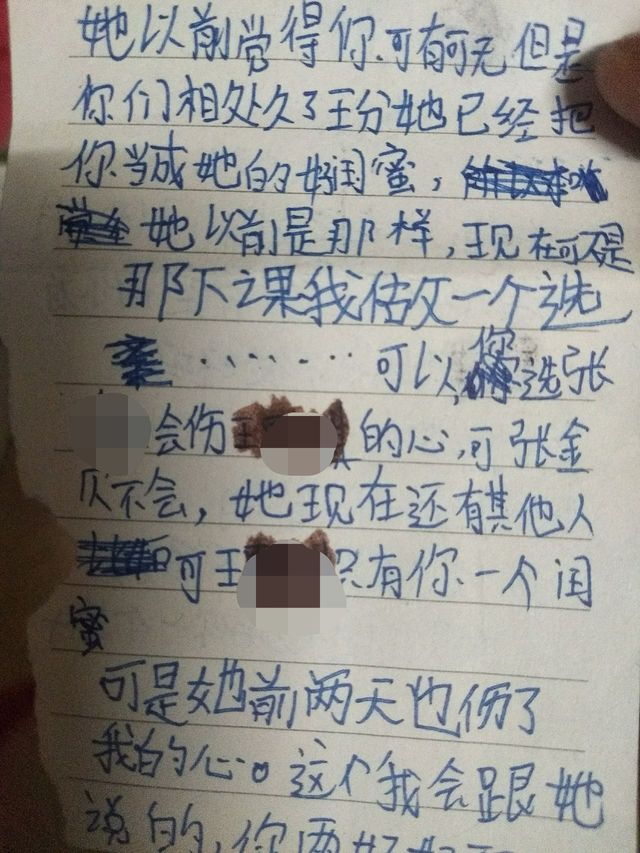 她以前觉得你可有可无但是
你们相处久了王分她已经把
你当成她的好闺蜜，
她以前是那样，现在可不是
那下课我估攵一个选
………可以，你选张
会伤王的心，可张金
贝不会，她现在还有其他人
可王只有你一个闺
蜜
可是她前两天也伤了
我的心。这个我会跟她
说的，你两好好